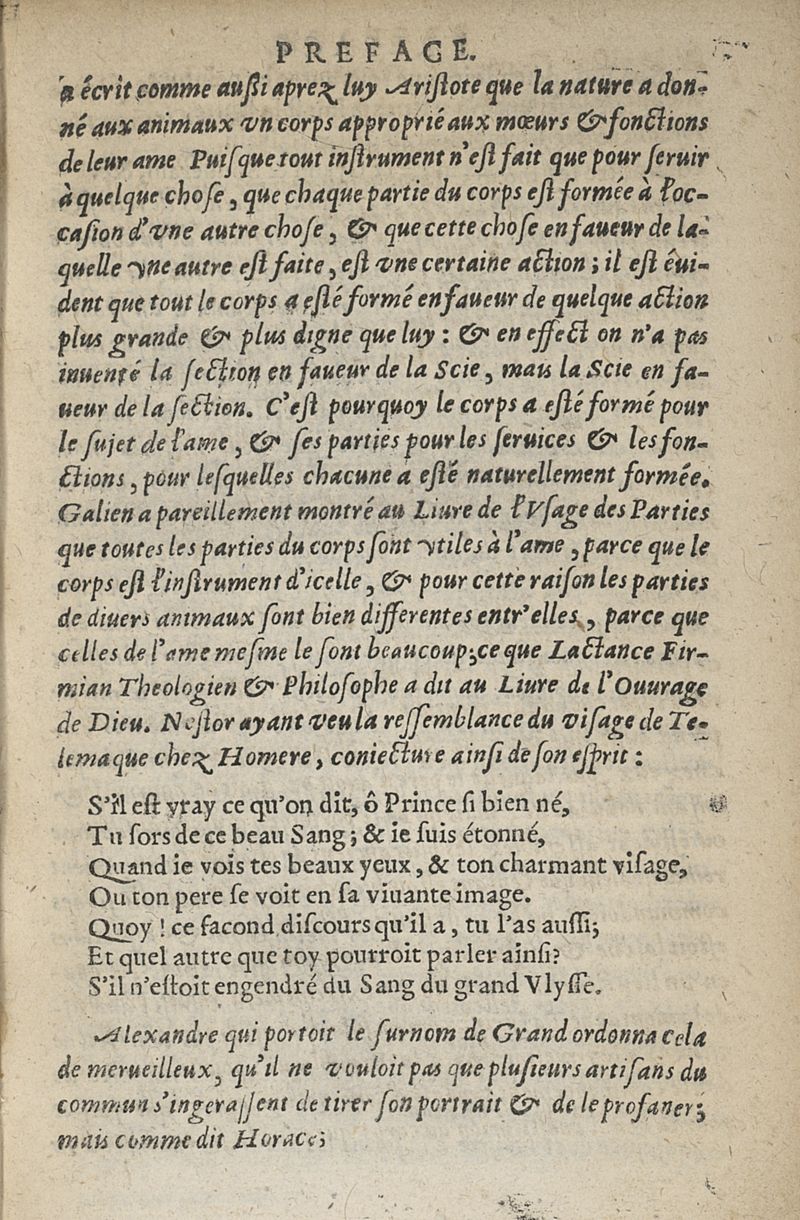 PREFACE.
a écrit comme aussi aprez luy Aristote que la nature a don-
né aux animaux vn corps approprié aux mœurs & fonctions
de leur ame Puisque tout instrument n'est fait que pour seruir
à quelque chose, que chaque partie du corps est formée à l'oc-
casion d'vne autre chose, & que cette chose en faueur de la-
quelle vne autre est faite, est vne certaine action; il est éui-
dent que tout le corps a esté formé en faueur de quelque action
plus grande & plus digne que luy: & en effect on n'a pas
inuenté la section en faueur de la Scie, mais la Scie en fa-
ueur de la section. C'est pourquoy le corps a esté formé pour
le sujet de l'ame, & ses parties pour les seruices & les fon-
ctions, pour lesquelles chacune a esté naturellement formée.
Galien a pareillement montré au Liure de l'Vsage des Parties
que toutes les parties du corps sont vtiles à l'ame, parce que le
corps est l'instrument d'icelle, & pour cette raison les parties
de diuers animaux sont bien differentes entr'elles, parce que
celles de l'ame mesme le sont beaucoup; ce que Lactance Fir-
mian Theologien & Philosophe a dit au Liure de l'Ouurage
de Dieu. Nestor ayant veu la ressemblance du visage de Te-
lemaque chez Homere, coniecture ainsi de son esprit:
S'il est vray ce qu'on dit, ô Prince si bien né,
Tu sors de ce beau Sang; & ie suis étonné,
Quand ie vois tes beaux yeux, & ton charmant visage,
Ou ton pere se voit en sa viuante image.
Quoy! ce facond discours qu'il a, tu l'as aussi;
Et quel autre que toy pourroit parler ainsi?
S'il n'estoit engendré du Sang du grand Vlysse.
Alexandre qui portoit le surnom de Grand ordonna cela
de merueilleux, qu'il ne vouloit pas que plusieurs artisans du
commun s'ingerassent de tirer son portrait & de le profaner;
mais comme dit Horace;